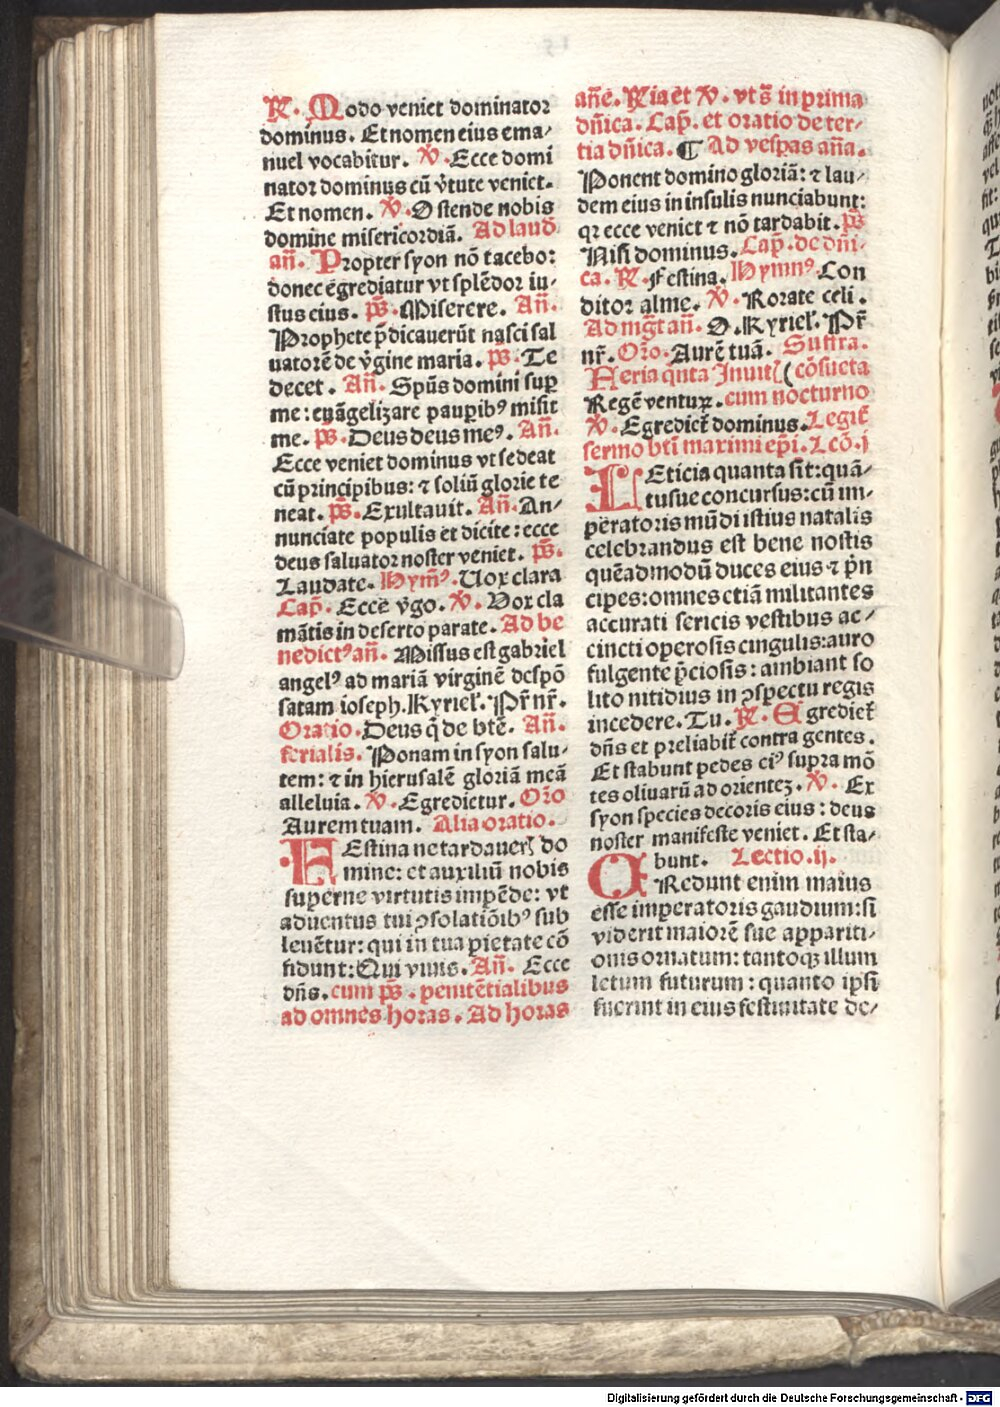 R. Modo veniet dominator
dominus. Et nomen eius ema⸗
nuel vocabitur. V. Ecce domi
nator dominus cū v̄tute veniet.
Et nomen. V. Ostende nobis
domine misericordiā. Ad laud̄
añ. Propter syon nō tacebo:
donec egrediatur vt splēdor iu⸗
stus eius. p̄s. Miserere. Añ.
Prophete p̄dicauerūt nasci sal
uatorē de v̄gine maria. p̄s. Te
decet. Añ. Spūs domini suꝑ
me: euāgelizare pauꝑibꝰ misit
me. p̄s. Deus deus meꝰ. Añ.
Ecce veniet dominus vt sedeat
cū principibus: ⁊ soliū glorie te
neat. p̄s. Exultauit. Añ. An⸗
nunciate populis et dicite: ecce
deus saluator noster veniet. p̄s.
Laudate. Hym̄ꝰ. Uox clara
Cap̄. Ecce v̄go. V. Vox cla
mātis in deserto parate. Ad be
nedictꝰ añ. Missus est gabriel
angelꝰ ad mariā virginē despō
satam ioseph. Kyriel̄. Pr̄ nr̄.
Oratio. Deus q̄ de btē. Añ.
ferialis. Ponam in syon salu⸗
tem: ⁊ in hierusalē gloriā meā
alleluia. V. Egredietur. Or̄o
Aurem tuam. Alia oratio.
FEstina ne tardauer̄ do
mine: et auxiliū nobis
superne virtutis impēde: vt
aduentus tui ꝯsolatiōibꝰ sub
leuētur: qui in tua pietate cō
fidunt: Qui viuis. Añ. Ecce
dn̄s. cum p̄s. penitētialibus
ad omnes horas. Ad horas
añe. Ria et V. vt s̄ in prima
dn̄ica. Cap̄. et oratio de ter⸗
tia dn̄ica. ¶ Ad vesp̄as añā.
Ponent domino gloriā: ⁊ lau⸗
dem eius in insulis nunciabunt:
qꝛ ecce veniet ⁊ nō tardabit. p̄s
Nisi dominus. Cap̄. de dn̄i⸗
ca. R. Festina. Hymnꝰ. Con
ditor alme. V. Rorate celi.
Ad mgt̄ añ. O. Kyriel̄. Pr̄
nr̄. Or̄o. Aurē tuā. Suffra.
Feria q̄nta Inuit̄ (cōsueta
Regē ventuꝝ. cum nocturno
V. Egrediet̄ dominus. Legit̄
sermo bt̄i maximi ep̄i. Lcō. j
LEticia quanta sit: quā⸗
tusue concursus: cū im⸗
peratoris mūdi istius natalis
celebrandus est bene nostis
quēadmodū duces eius ⁊ p̄n
cipes: omnes etiā militantes
accurati sericis vestibus ac⸗
cincti operosis cingulis: auro
fulgente p̄ciosis: ambiant so
lito nitidius in ꝯspectu regis
incedere. Tu. R. Egrediet̄
dn̄s et preliabit̄ contra gentes.
Et stabunt pedes eiꝰ supra mō
tes oliuarū ad orientēꝫ. V. Ex
syon species decoris eius: deus
noster manifeste veniet. Et sta⸗
bunt. Lectio. ij.
CRedunt enim maius
esse imperatoris gaudium: si
viderit maiorē sue appariti⸗
onis ornatum: tantoqꝫ illum
letum futurum: quanto ipsi
fuerint in eius festiuitate de⸗
Digitalisierung gefördert durch die Deutsche Forschungsgemeinschaft - DFG